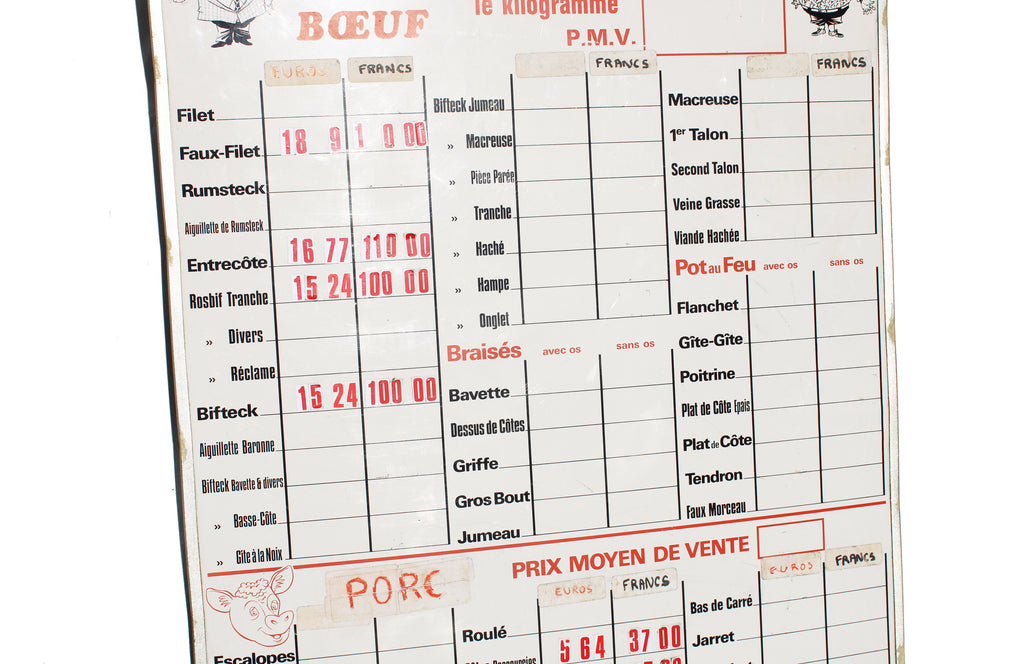 BŒUF
le kilogramme
P.M.V.
EUROS FRANCS
Filet
Faux-Filet 18 9 1 0 00
Rumsteck
Aiguillette de Rumsteck
Entrecôte 16 77 110 00
Rosbif Tranche 15 24 100 00
» Divers
» Réclame
Bifteck 15 24 100 00
Aiguillette Baronne
Bifteck Bavette & divers
» Basse-Côte
» Gîte à la Noix
FRANCS
Bifteck Jumeau
» Macreuse
» Pièce Parée
» Tranche
» Haché
» Hampe
» Onglet
Braisés avec os sans os
Bavette
Dessus de Côtes
Griffe
Gros Bout
Jumeau
FRANCS
Macreuse
1er Talon
Second Talon
Veine Grasse
Viande Hachée
Pot au Feu avec os sans os
Flanchet
Gîte-Gîte
Poitrine
Plat de Côte Epais
Plat de Côte
Tendron
Faux Morceau
PRIX MOYEN DE VENTE
PORC
Escalopes
EUROS FRANCS
Roulé 5 64 37 00
EUROS FRANCS
Bas de Carré
Jarret